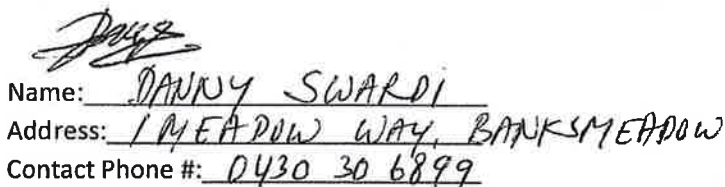 Name: DANNY SWARDI
Address: 1 MEADOW WAY, BANKSMEADOW
Contact Phone #: 0430 30 6899